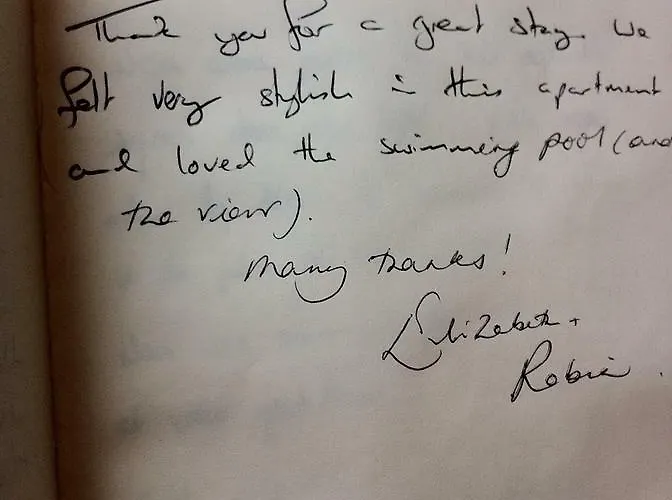 Thank you for a great stay. We
felt very stylish in this apartment
and loved the swimming pool (and
the view).
Many thanks!
Elizabeth +
Robin.